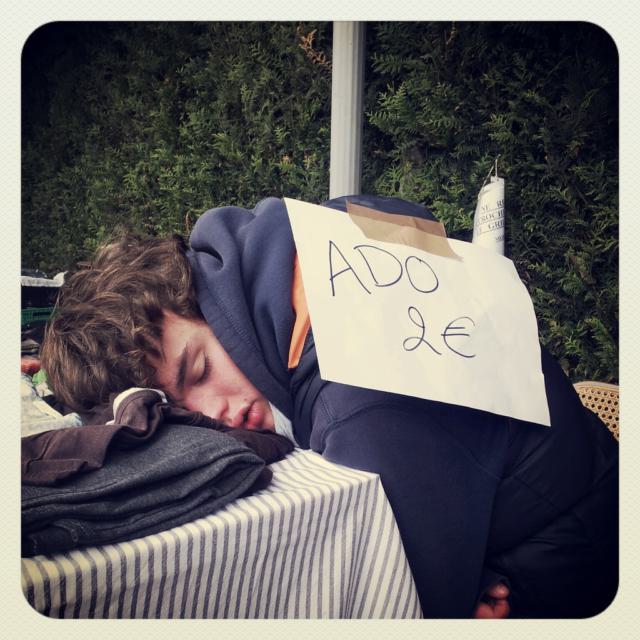 ADO
2€